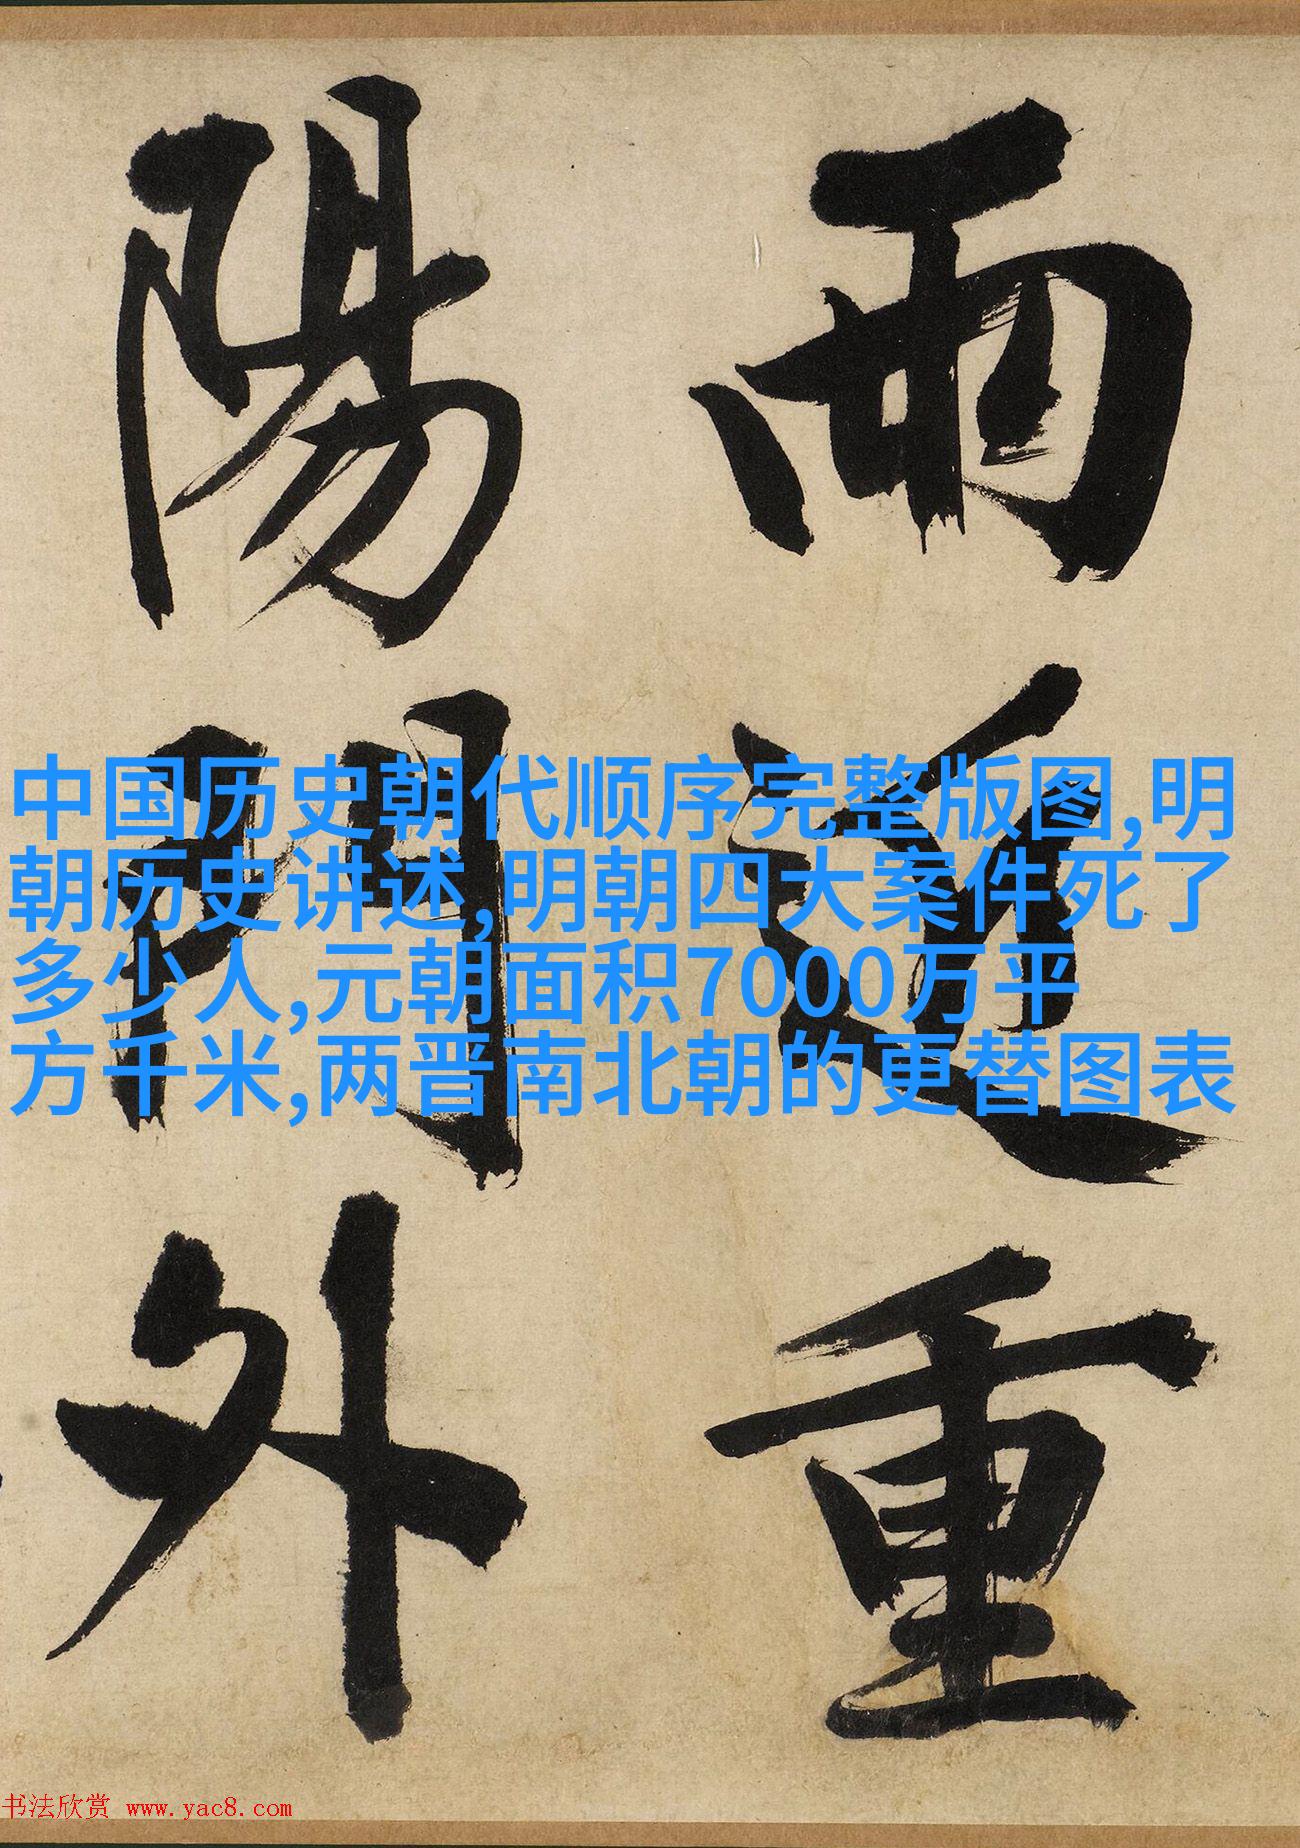 雨近重
陽門外
中国历史朝代顺序完整版图,明
朝历史讲述,明朝四大案件死了
多少人,元朝面积7000万平
方千米,两晋南北朝的更替图表
书法欣赏 www.yac8.com